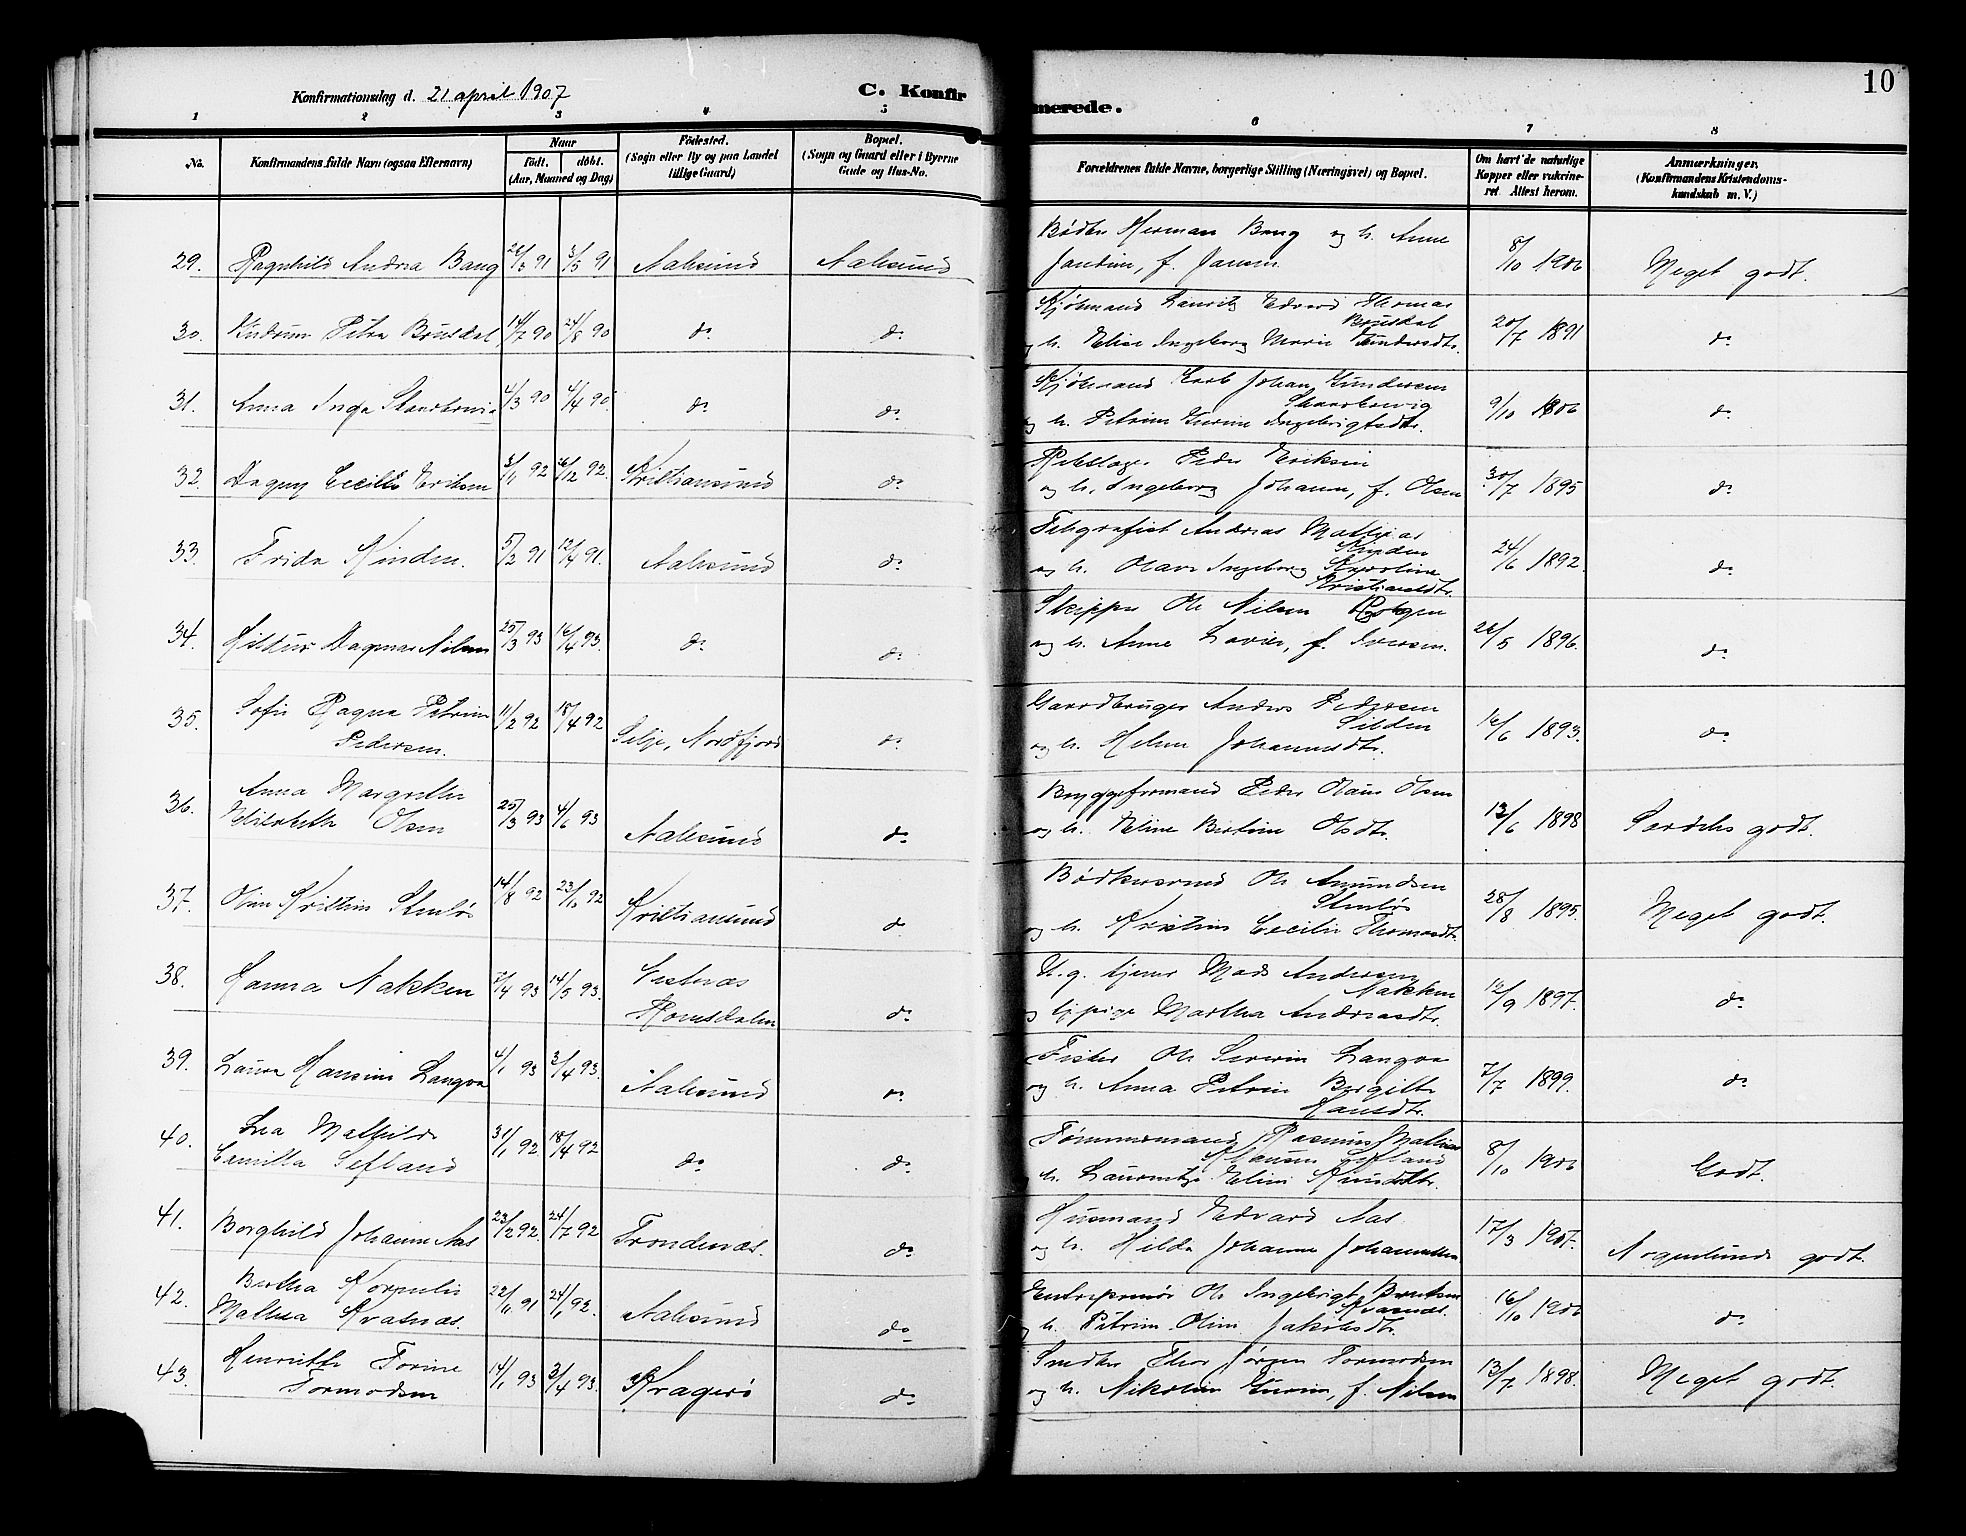 10
Konfirmationsdag d. 21 april 1907
C. Konfirmerede.
1 2 3 4 5 6 7 8
No.
Konfirmandens fulde Navn (ogsaa Efternavn)
Naar
födt. döbt.
(Aar, Maaned og Dag)
Födested.
(Sogn eller By og paa Landet
tillige Gaard)
Bopæl.
(Sogn og Gaard eller i Byerne
Gade og Hus-No.
Forældrenes fulde Navne, borgerlige Stilling (Næringsvei) og Bopæl.
Om havt de naturlige
Kopper eller vakcine-
ret Attest herom.
Anmærkninger.
(Konfirmandens Kristendoms-
kundskab m. V.)
29. Ragnhild Andrea Bang 3/5 91 Aalesund Aalesund
Bødker Herman Bang og h. Anne
f. Jansen 8/10 1906 Meget godt.
30. Gudrun Petra Brusdal 14/7 90 24/8 90 do do
Kjøbmand Laurits Edvard Thomas
Brusdal
og h. Eline Ingeborg Marie Gundersdtr. 20/7 1891 do
31. Anna Inga Skarbøvig 4/3 90 4/4 90 do do
Kjøbmand Karl Johan Gundersen
Skarbøvig
og h. Petrine Gurine Ingebrigtsdtr. 9/10 1806 do
32. Dagny Cecilie Eriksen 3/1 92 26/12 92. Kristiansund do
Rebslager Peder Eriksen
og h. Ingeborg Johanne, f. Olsen 30/7 1895 do
33. Frida Kinden. 5/2 91 12/4 91. Aalesund do
Telegrafist Andreas Mathias
Kinden
og h. Olave Ingeborg Karoline
Kristiansdtr. 24/6 1892. do
34. Hildur Dagmar Nilsen 25/3 93 16/4 93. do do
Skipper Ole Nilsen
og h. Anne Lovise, f. Iversen. 26/5 1896. do
35. Sofie Ragna Petrine
Pedersen. 11/2 92 18/4 92 Selje, Nordfjord do
Gaardbruger Anders Pedersen
Silden
og h. Helene Johannesdtr. 16/6 1893. do
36. Anna Margrethe
Elisabeth Olsen 25/3 93 4/6 93 Aalesund do
Bryggeformand Peder Olaus Olsen
og h. Eline Bertine Olsdtr. 13/6 1898 Særdeles godt.
37. Oline Kristine Stenløs 14/8 92 23/10 92 Kristiansund do
Bødkersvend Ole Amundsen
Stenløs
og h. Kristine Cecilie Thomasdtr. 28/8 1895. Meget godt.
38. Hanna Nakken 2/4 93 14/5 93. Vestnæs
Romsdalen do
U.g. tjener Mads Andersen
Nakken
og tj.pige Martha Andreasdtr. 12/9 1897. do
39. Laura Hansine Langva 4/1 93 3/4 93. Aalesund do
Fisker Ole Severin Langva
og h. Anna Petrine Bergitte
Hansdtr. 7/7 1899. do
40. Lea Mathilde
Camilla Sefland 31/1 92 18/4 92 do do
Tømmermand Rasmus Mathias
Klausen Sefland
h. Laurentze Eline Knudsdtr. 8/10 1906 Godt.
41. Borghild Johanne Aas 23/2 92. 24/7 92 Trondenæs. do
Husmand Edvard Aas.
og h. Hilda Johanne Johannessen 17/3 1907. Nogenlunde godt.
42. Bertha Kornelie
Mathea Kvasnæs. 22/11 91 24/1 92. Aalesund do
Entreprenør Ole Ingebrigt Berntsen
Kvasnæs.
og h. Petrine Oline Jakobsdtr. 16/10 1906 do
43. Henriette Torine
Tormodsen 14/1 93 3/4 93. Kragerø do
Smed Thor Jørgen Tormodsen
og h. Nikoline Gurine, f. Nilsen 13/7 1898. Meget godt.